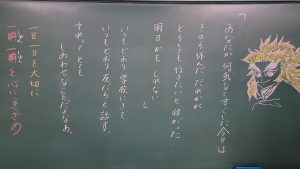 「
あなたが何気なくすごした今日は
きのう休んだだれかが
どうしても行きたいと願った
明日かもしれない」
いつもどおり学校にきて
いつもどおり友だちと話す。
それってとても
しあわせなことだよなあ。
一日一日を大切に
一瞬一瞬を心にきざめ